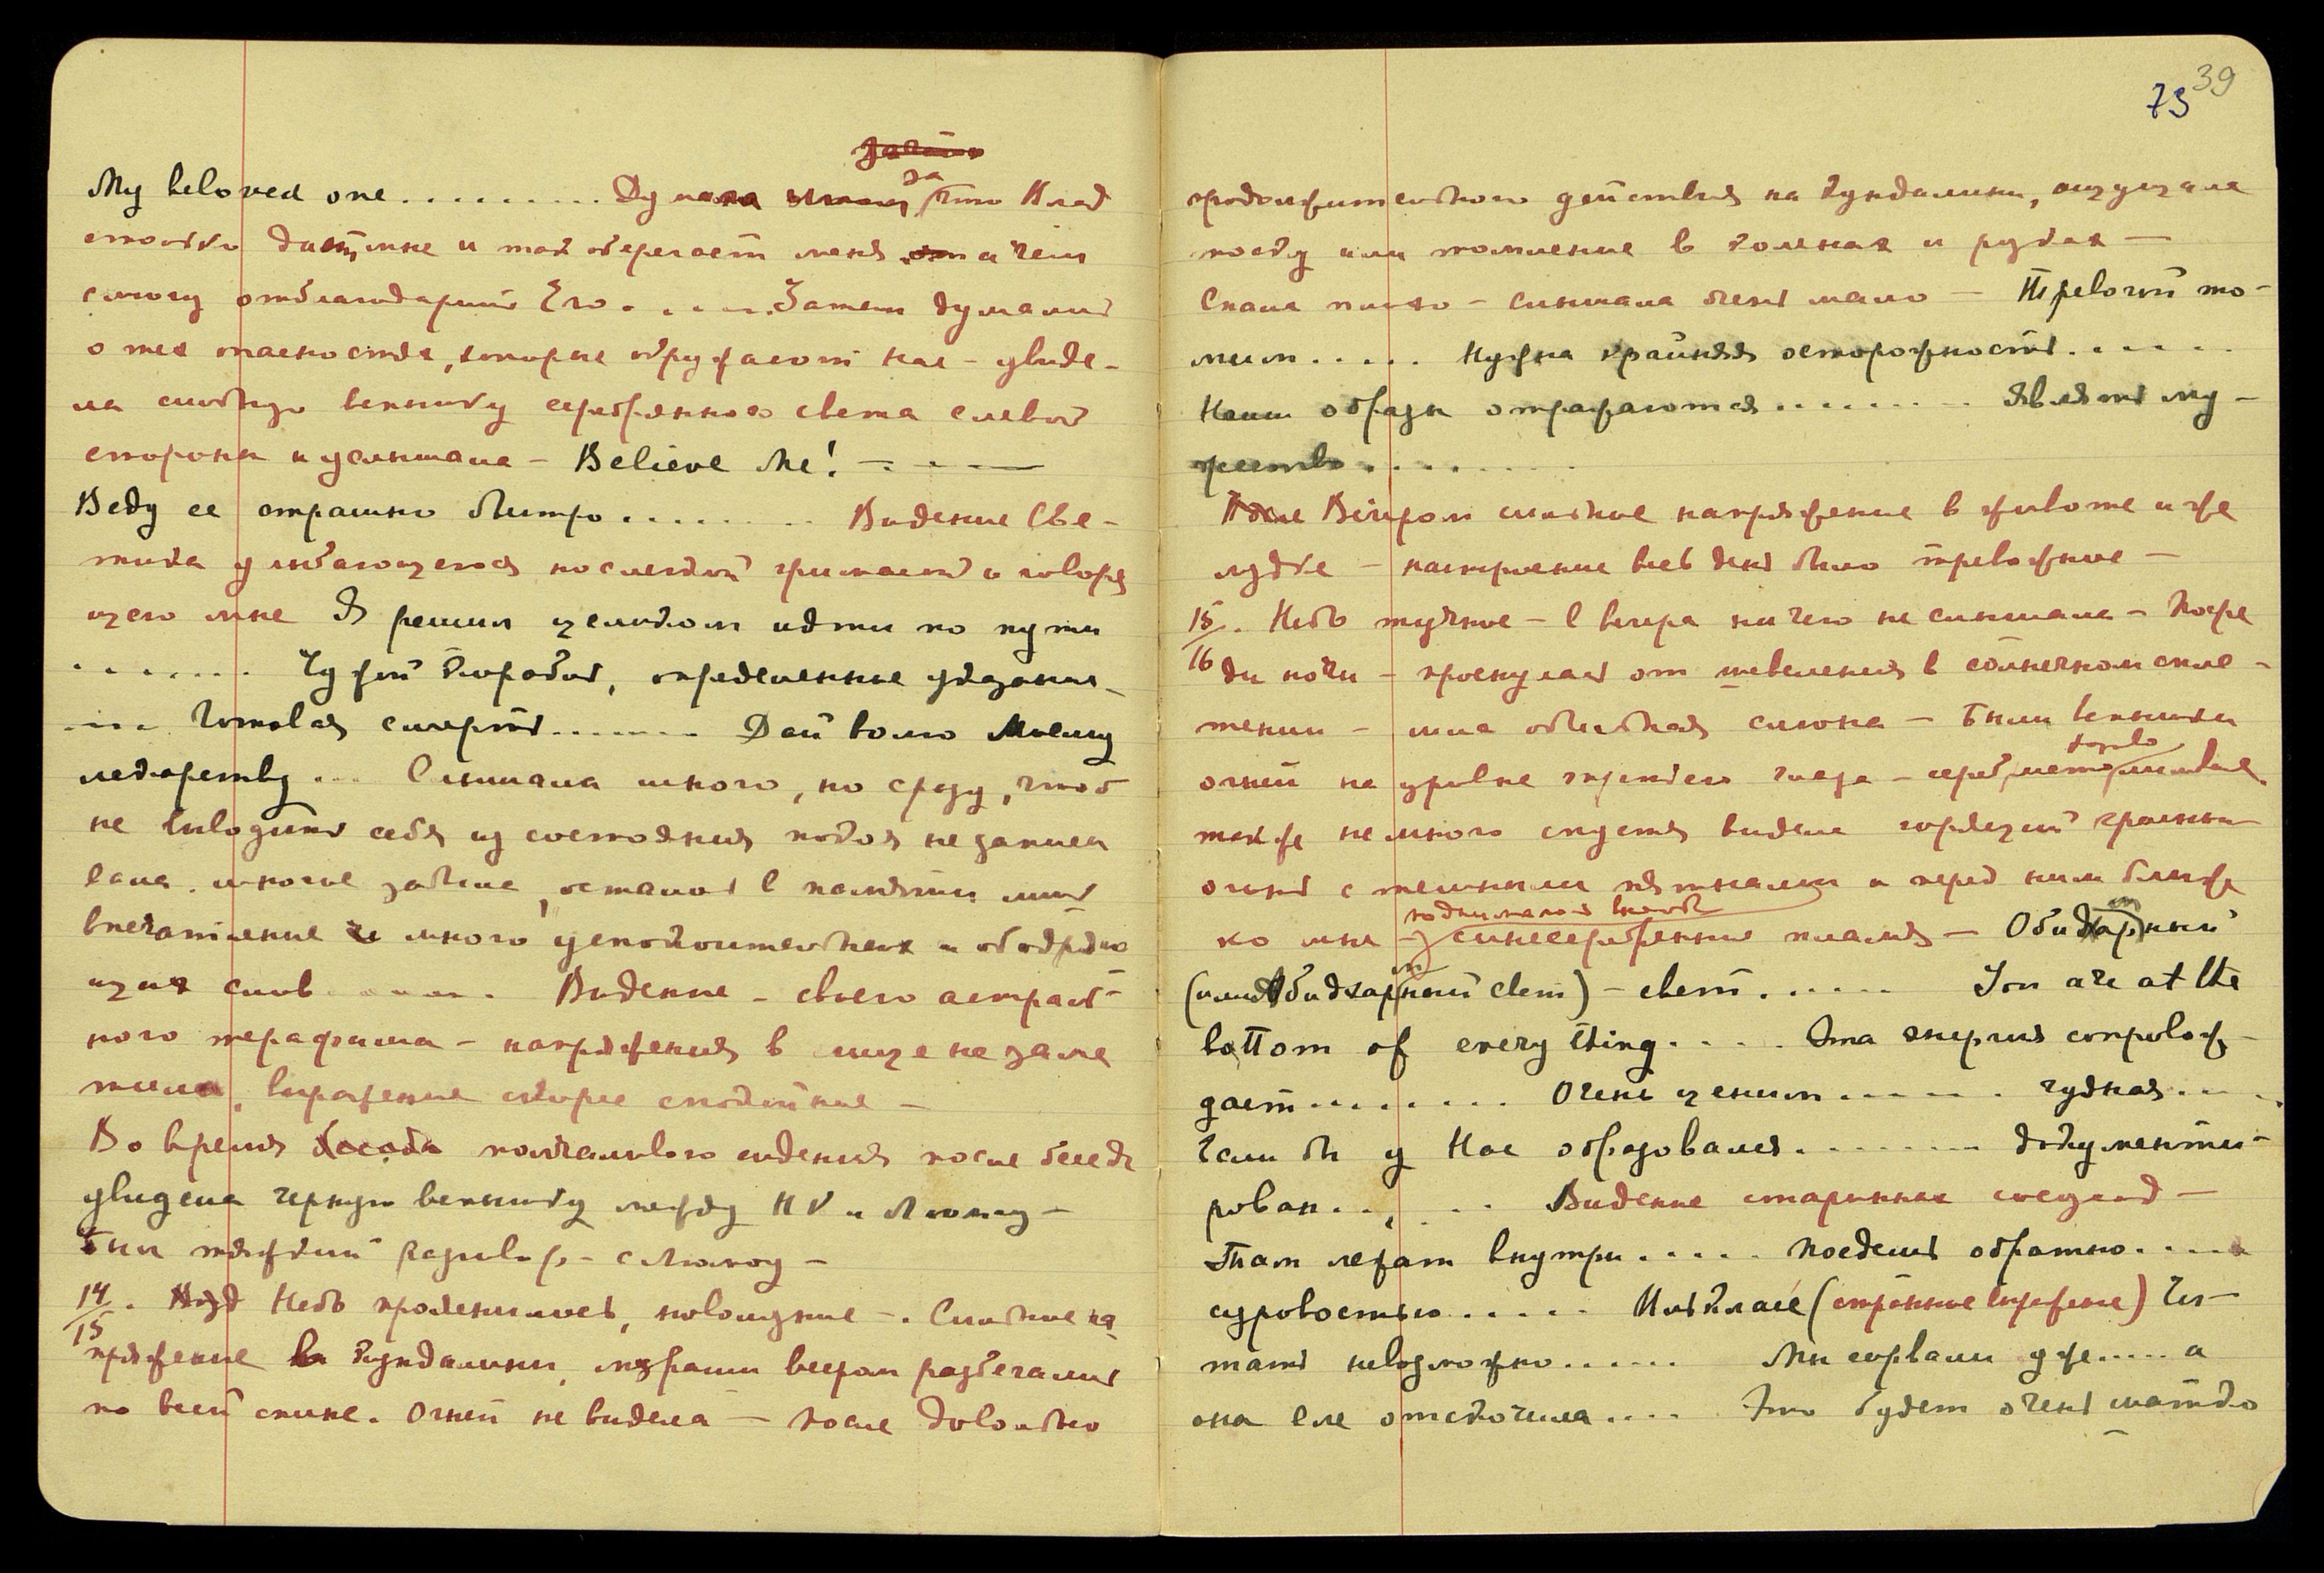 39
73
My beloved one.......... Думала за что Влад
столько доступнее и так оберегает меня и чем
смогу отблагодарить Его. . . . . Затем думались
о тех опасностях, которые окружают нас - увиде-
ла снова вспышку серебрянного света с левой
стороны и услышала - Believe Me! - - - -
Веду ее страшно быстро......... Видение Све-
тика улыбающегося после гримасы и говоря
щего мне Я решил целиком идти по пути
....... Чужой коробки, определенные указания -
.... Готовая смерть....... Дай волю Моему
лекарству ... Слышала много, но сразу, чтоб
не выводить себя из состояния покоя не записы
вала. многое забыла, осталось в памяти лишь
впечатление много успокоительных и ободряю
щих слов ....... Видение - своего астраль-
ного терафима - напряжения в лице не заме
тила, выражение скорее спокойное -
Во время молчаливого сидения после беседы
увидела черную вспышку между Н К и Люмоу -
Был тяжкий разговор - с Люмоу -
14/15. Небо прояснилось, новолуние -. Сильное на
пряжение кундалини, мураши веером разбегались
по всей спине. Огней не видела - после довольно
продолжительного действия на кундалини, ощущала
тоску или томление в коленах и руках -
Спала плохо - слышала очень мало - Тревогой то-
мим..... Нужна крайняя осторожность......
Наши образы отражаются......... Являть му-
жество.........
Вечером сильное напряжение в животе и же
лудке - настроение весь день было тревожное -
15/16. Небо тучное - с вечера ничего не слышала - Посре
ди ночи - проснулась от шевеления в солнечном спле-
тении - шла обильная слюна - Были вспышки
огней на уровне третьего глаза -
также немного спустя видела горящий красный
огонь с темными пятнами и перед ним ближе
ко мне - поднималось вверх синесеребрянное пламя -
свет) - свет....... You are at the
bottom of every thing..... Эта энергия сопровож-
дает......... Очень ценим...... чудная.....
Если бы у Нас образовался........ документи-
рован....... Видение старинных сосудов -
Там лежат внутри..... Поедешь обратно.....
суровостью..... (странное выражение) Чи-
тать невозможно...... Мы сорвали уже..... а
она еле отскочила.... Это будет очень